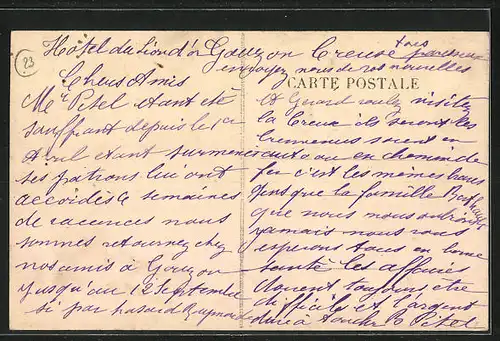 23
Hôtel du Lion d'or Gouzon Creuse
envoyez nous de vos nouvelles
CARTE POSTALE
Chers Amis
Mr Pitel etant été
souffrant depuis le 1er
Avril etant surmené
ses patrons lui ont
accordés 6 semaines
de vacances nous
sommes retournez chez
nos amis à Gouzon
jusqu'au 12 Septembre
si par hasard Raymonde
et Gerard voulez visitez
la Creuse ils seront les
bienvenus soient en
auto ou en chemin de
fer c'est les mêmes
gens que la famille
que nous nous
jamais nous vous
esperons tous en bonne
santé les affaires
doivent toujours etre
difficiles et l'argent
dure a toucher Pitel